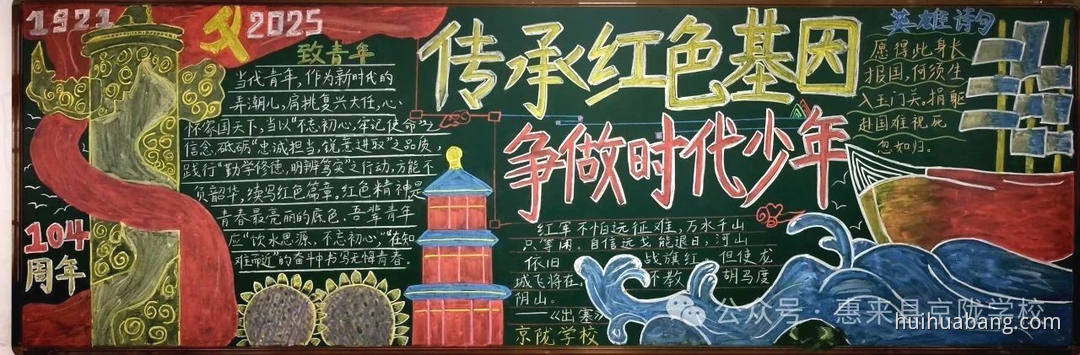 1921
2025
致青年
当代青年，作为新时代的
弄潮儿，肩挑复兴大任，心
怀家国天下，当以“不忘初心，牢记使命”之
信念，砥砺“忠诚担当，锐意进取”之品质，
践行“勤学修德，明辨笃实”之行动，方能不
负韶华，续写红色篇章。红色精神是
青春最亮丽的底色，吾辈青年
应“饮水思源，不忘初心”，“在知
难而进”的奋斗中书写无悔青春。
104
周年
传承红色基因
争做时代少年
红军不怕远征难，万水千山
只等闲。自信远戈能退日，河山
依旧 战旗红 但使龙
城飞将在， 不教 胡马度
阴山。
——《出塞》
京陇学校
英雄诗句
愿得此身长
报国，何须生
入玉门关。捐躯
赴国难，视死
忽如归。
公众号·惠来县京陇学校
huihuabang.com